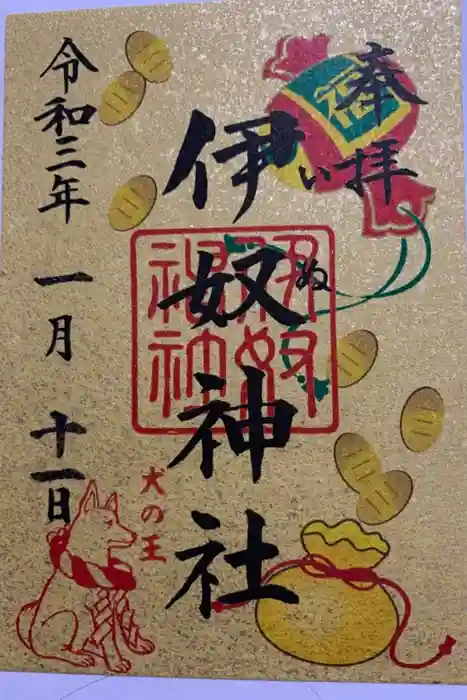 奉拝
福
伊奴神社
いぬ
伊奴神社
令和三年 一月 十一日
犬の王